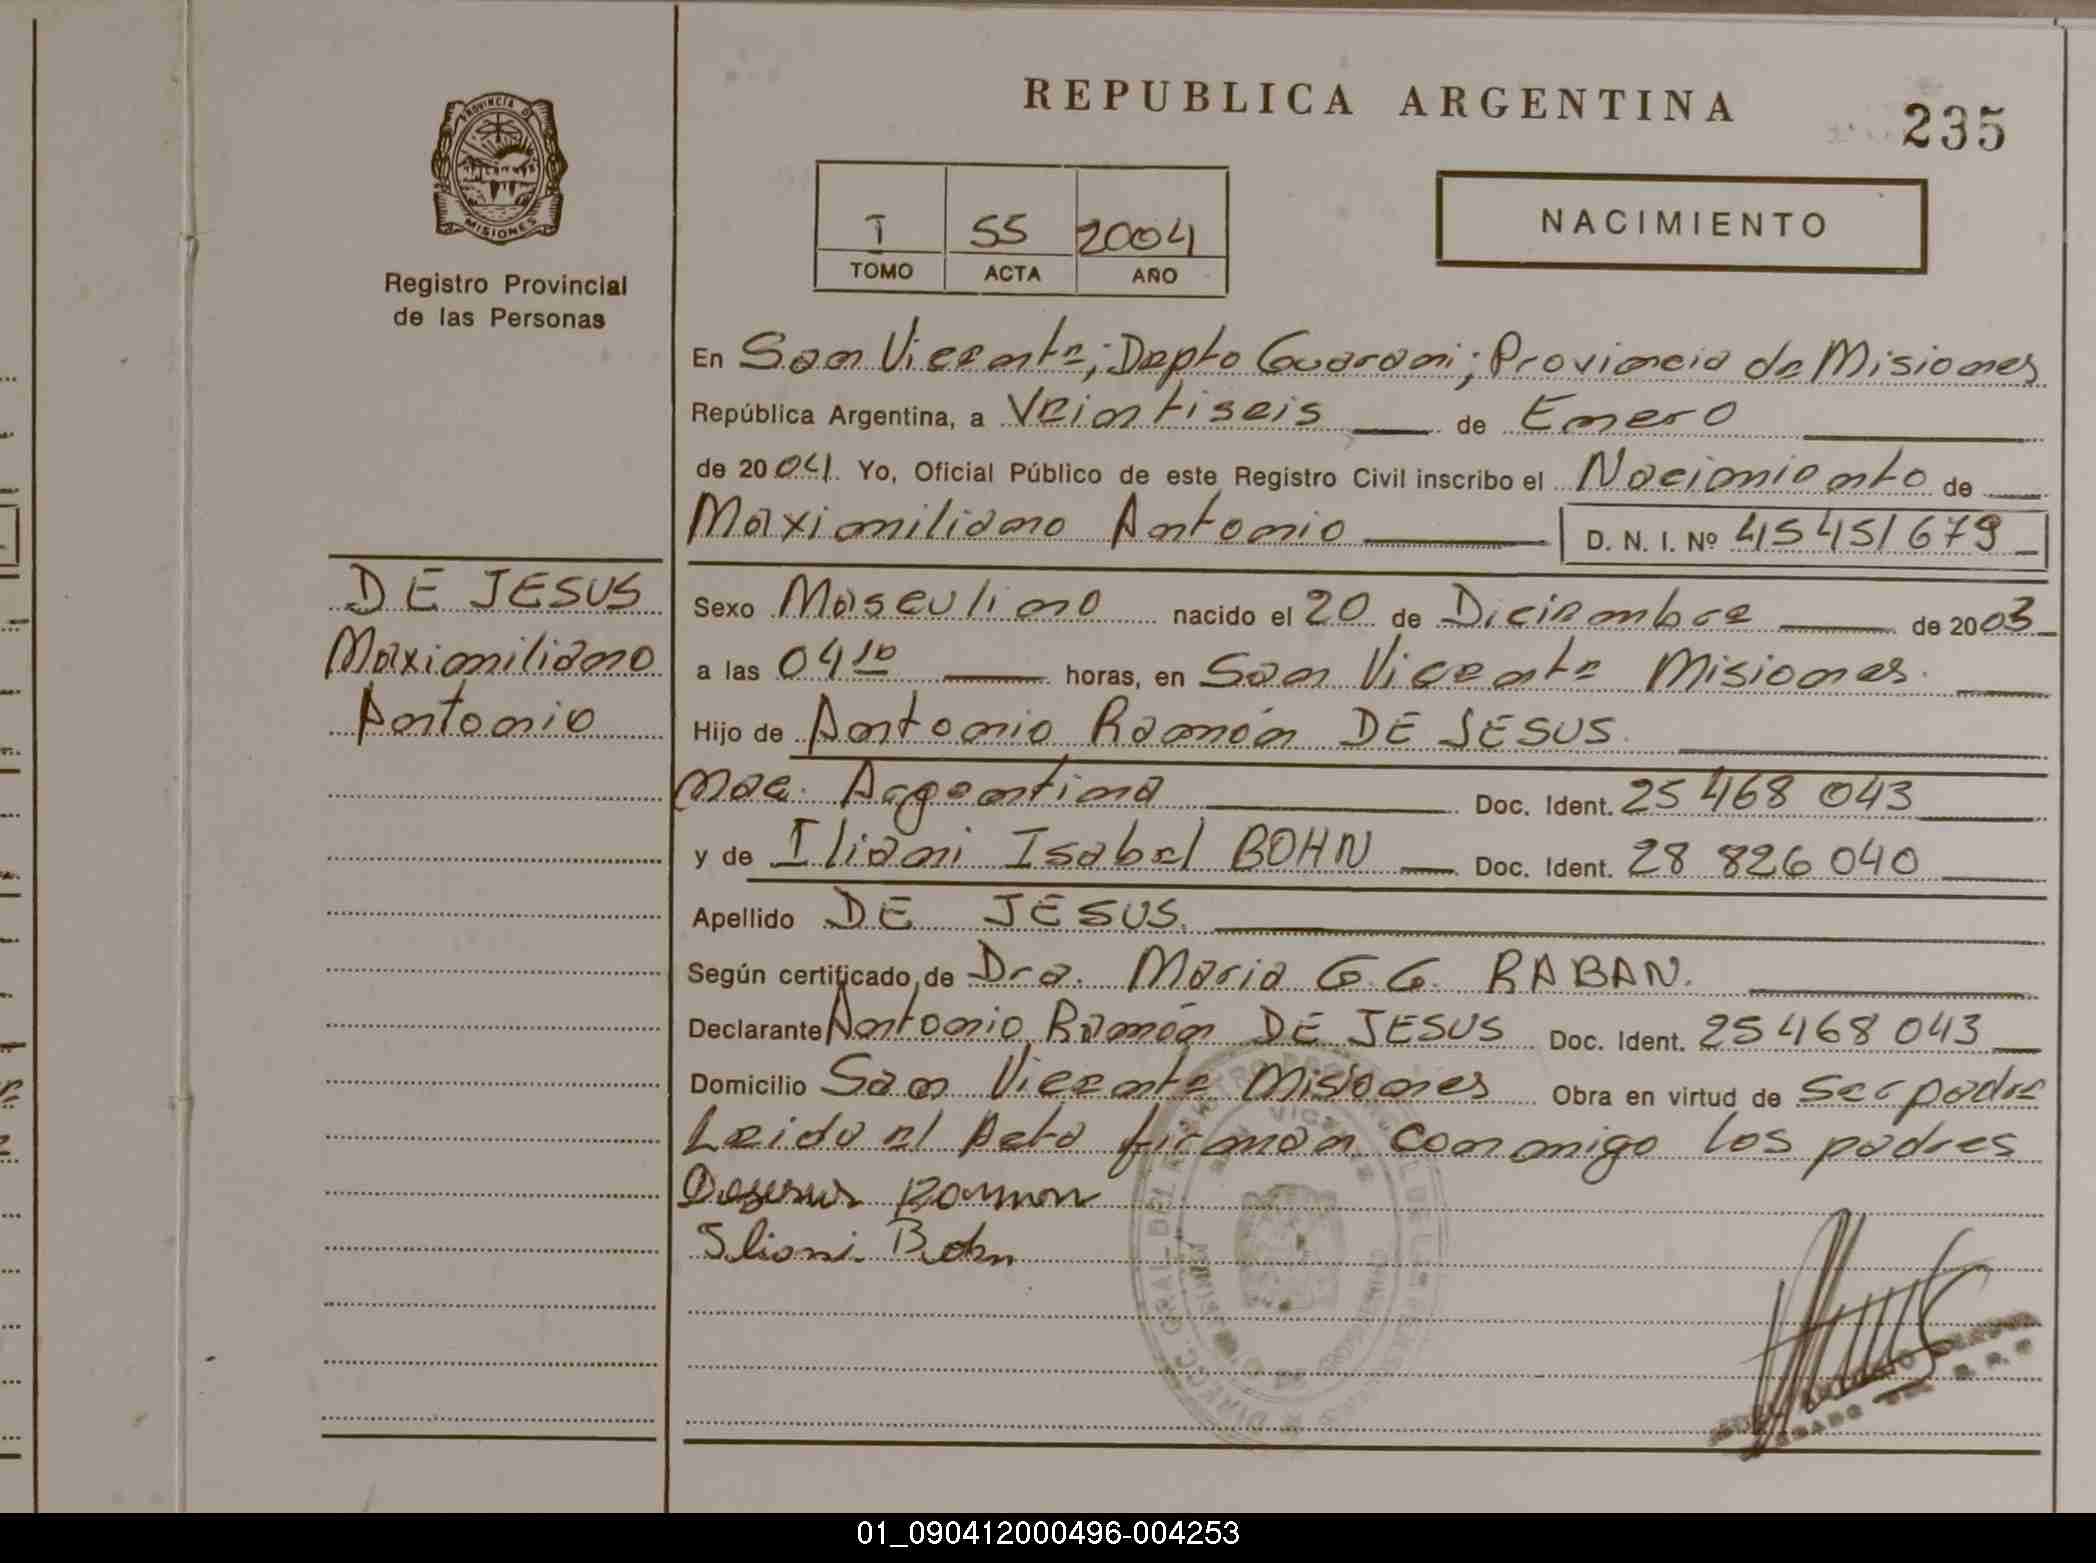 REPUBLICA ARGENTINA
235
PROVINCIA D
MISIONES
Registro Provincial
de las Personas
I 55 2004
TOMO ACTA AÑO
NACIMIENTO
En San Vicente; Depto Guarani; Provincia de Misiones
República Argentina, a Veintiseis de Enero
de 2004. Yo, Oficial Público de este Registro Civil inscribo el Nacimiento de
Maximiliano Antonio D. N. I. Nº 45451679
DE JESUS
Maximiliano
Antonio
Sexo Masculino nacido el 20 de Diciembre de 2003
a las 04 10 horas, en San Vicente Misiones.
Hijo de Antonio Ramón DE JESUS.
Nac. Argentina Doc. Ident. 25 468 043
y de Iliani Isabel BOHN Doc. Ident. 28 826 040
Apellido DE JESUS.
Según certificado de Dra. Maria G. G. RABAN.
Declarante Antonio Ramón DE JESUS Doc. Ident. 25 468 043
Domicilio San Vicente Misiones Obra en virtud de ser padre
Leido el Acta firman conmigo los padres
Dejesus Ramon
Iliani Bohn
01_090412000496-004253